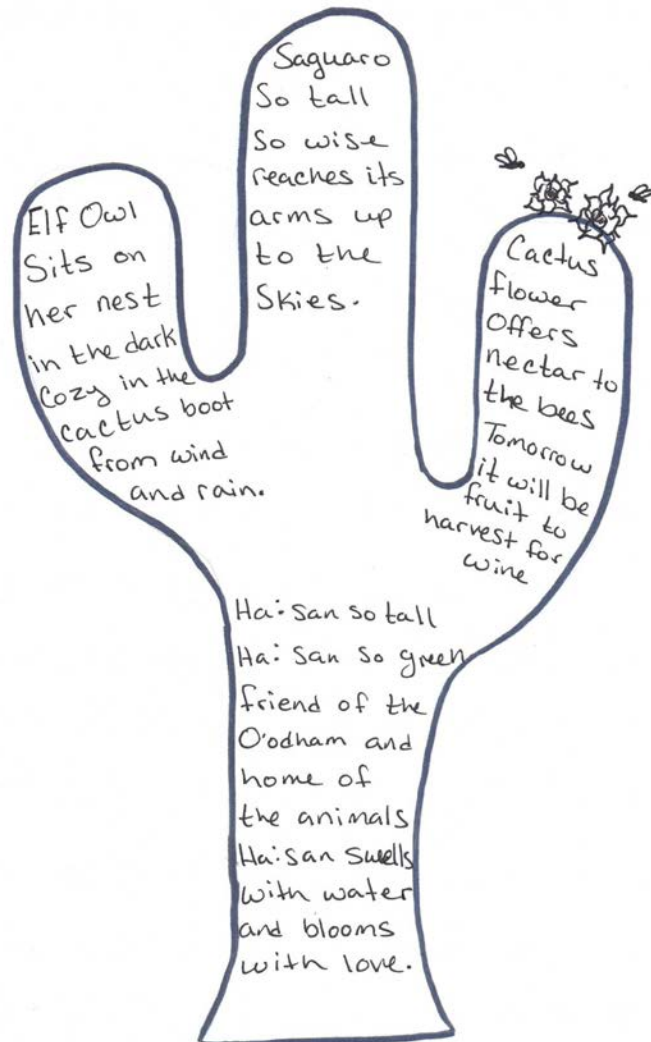 Saguaro
So tall
So wise
reaches its
arms up
to the
Skies.
Elf Owl
Sits on
her nest
in the dark
Cozy in the
cactus boot
from wind
and rain.
Cactus
flower
Offers
nectar to
the bees
Tomorrow
it will be
fruit to
harvest for
wine
Ha:san so tall
Ha:san so green
friend of the
O'odham and
home of
the animals
Ha:san swells
with water
and blooms
with love.